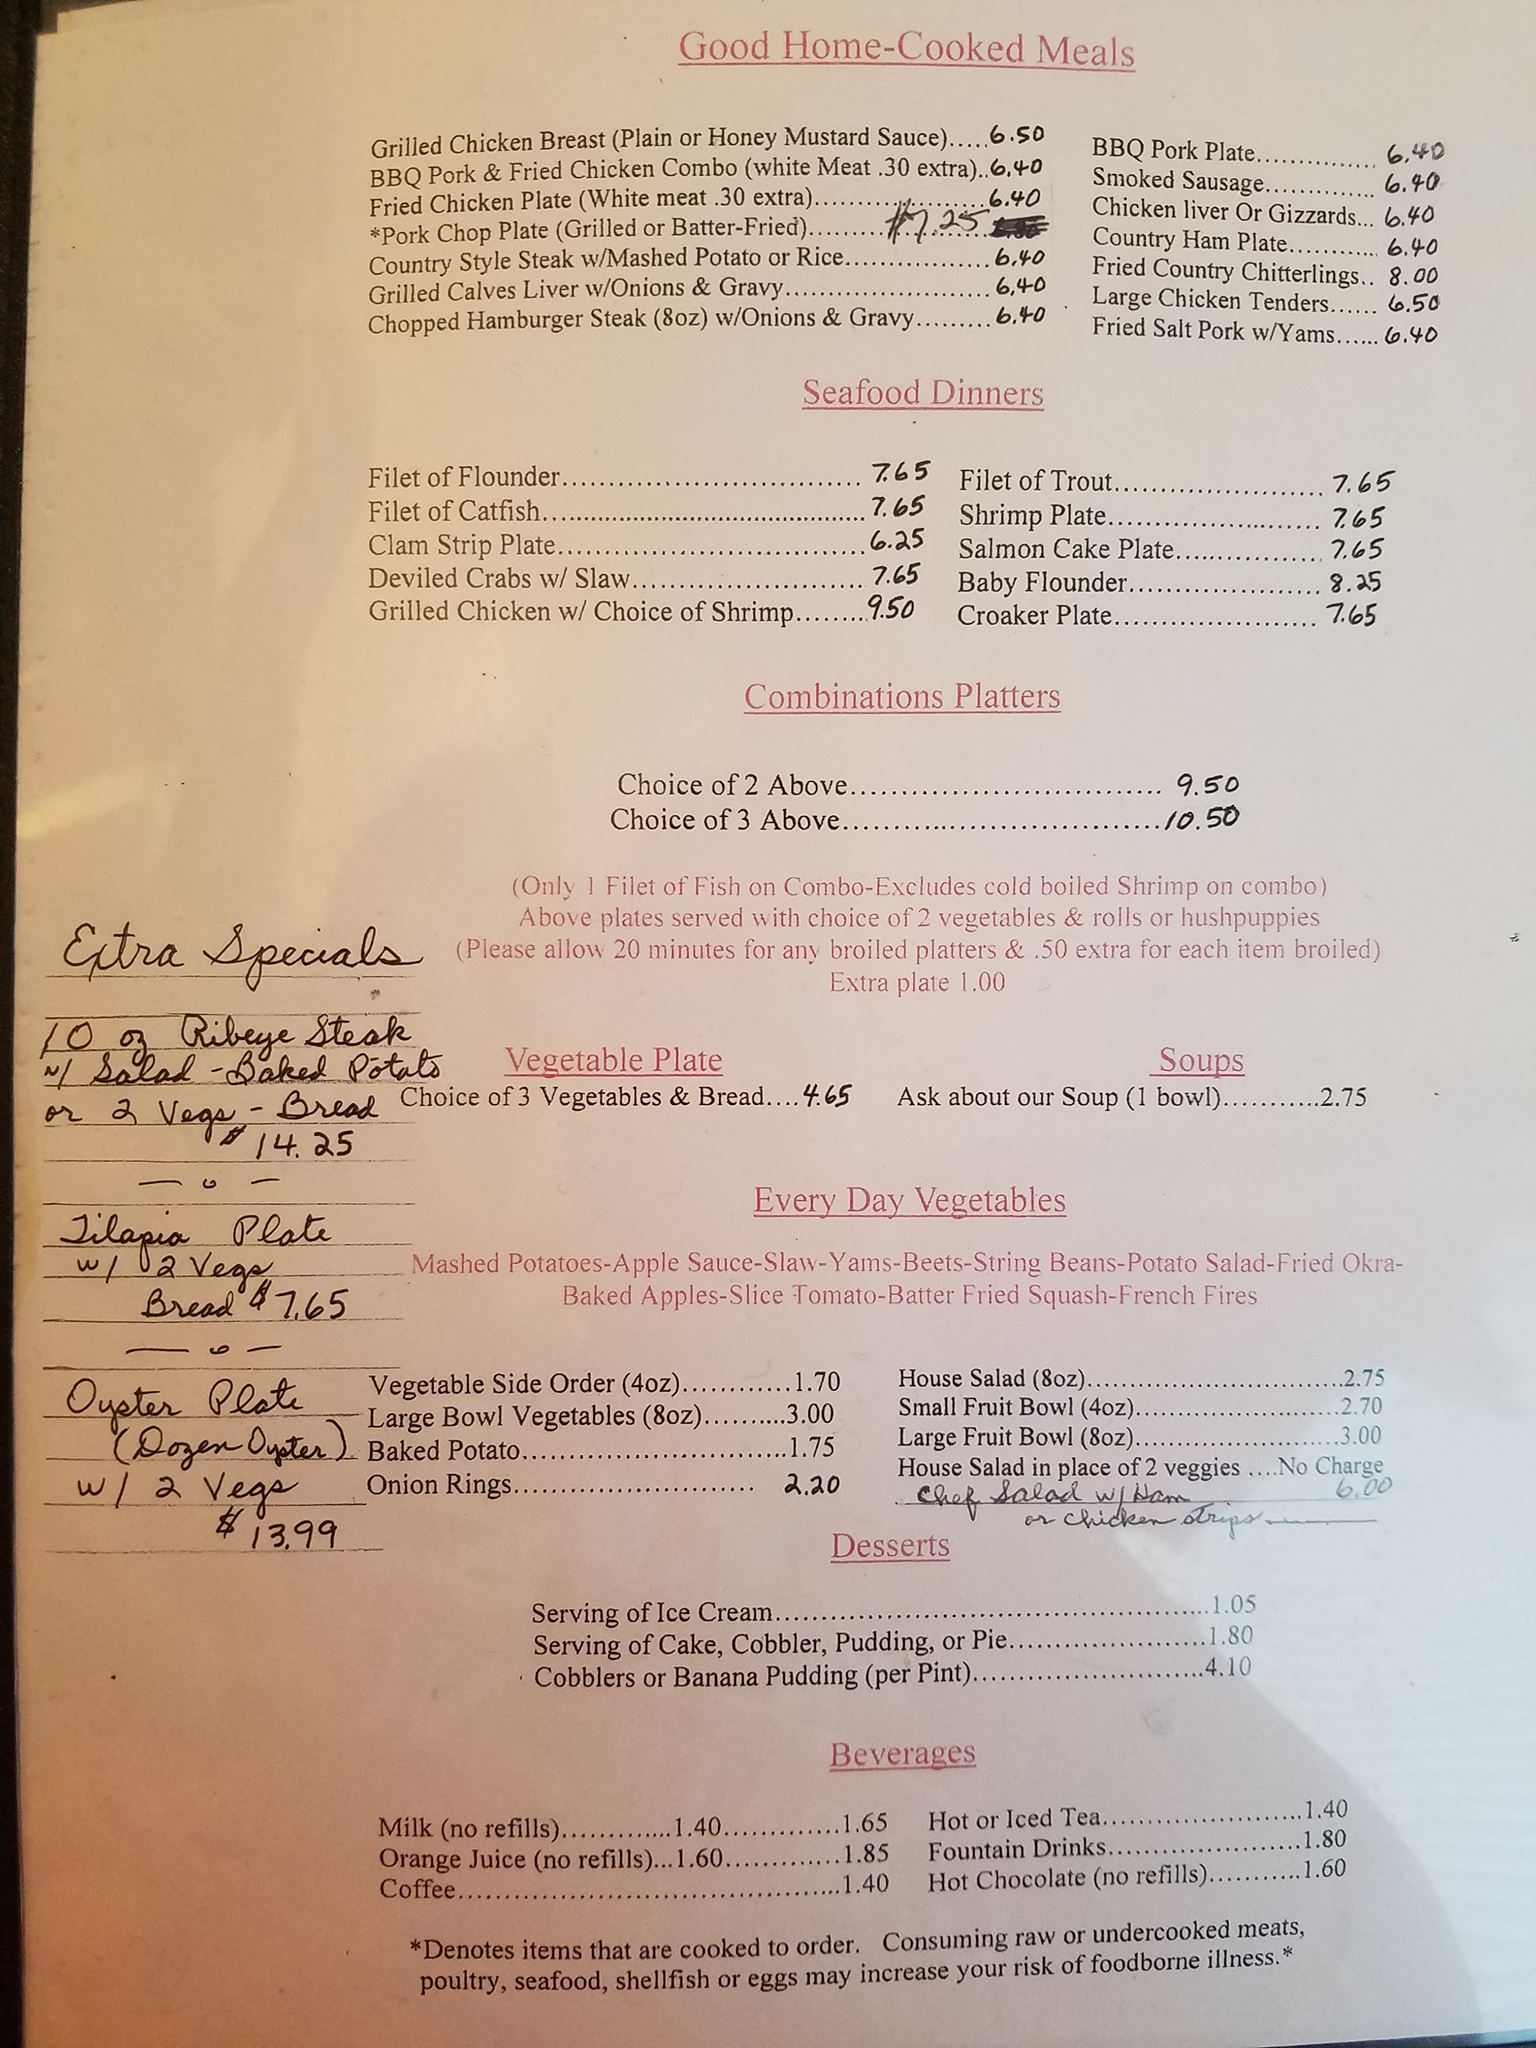 Good Home-Cooked Meals
Grilled Chicken Breast (Plain or Honey Mustard Sauce).....6.50
BBQ Pork & Fried Chicken Combo (white Meat .30 extra)..6.40
Fried Chicken Plate (White meat .30 extra)......................6.40
*Pork Chop Plate (Grilled or Batter-Fried)..........$7.25
Country Style Steak w/Mashed Potato or Rice..................6.40
Grilled Calves Liver w/Onions & Gravy..........................6.40
Chopped Hamburger Steak (8oz) w/Onions & Gravy.........6.40
BBQ Pork Plate............... 6.40
Smoked Sausage.............. 6.40
Chicken liver Or Gizzards... 6.40
Country Ham Plate........... 6.40
Fried Country Chitterlings.. 8.00
Large Chicken Tenders...... 6.50
Fried Salt Pork w/Yams...... 6.40
Seafood Dinners
Filet of Flounder.................................. 7.65
Filet of Catfish..................................... 7.65
Clam Strip Plate...................................6.25
Deviled Crabs w/ Slaw.......................... 7.65
Grilled Chicken w/ Choice of Shrimp........9.50
Filet of Trout........................ 7.65
Shrimp Plate........................ 7.65
Salmon Cake Plate................ 7.65
Baby Flounder...................... 8.25
Croaker Plate....................... 7.65
Combinations Platters
Choice of 2 Above................................ 9.50
Choice of 3 Above.................................10.50
(Only 1 Filet of Fish on Combo-Excludes cold boiled Shrimp on combo)
Above plates served with choice of 2 vegetables & rolls or hushpuppies
(Please allow 20 minutes for any broiled platters & .50 extra for each item broiled)
Extra plate 1.00
Extra Specials
10 oz Ribeye Steak
w/ Salad - Baked Potato
or 2 Vegs - Bread
$14.25
Tilapia Plate
w/ 2 Vegs
Bread $7.65
Oyster Plate
(Dozen Oyster)
w/ 2 Vegs
$13.99
Vegetable Plate
Choice of 3 Vegetables & Bread....4.65
Soups
Ask about our Soup (1 bowl)...........2.75
Every Day Vegetables
Mashed Potatoes-Apple Sauce-Slaw-Yams-Beets-String Beans-Potato Salad-Fried Okra-
Baked Apples-Slice Tomato-Batter Fried Squash-French Fires
Vegetable Side Order (4oz)............1.70
Large Bowl Vegetables (8oz)..........3.00
Baked Potato.............................1.75
Onion Rings.......................... 2.20
House Salad (8oz)..............................2.75
Small Fruit Bowl (4oz)........................2.70
Large Fruit Bowl (8oz)........................3.00
House Salad in place of 2 veggies ....No Charge
Chef Salad w/ Ham 6.00
or chicken strips
Desserts
Serving of Ice Cream................................................1.05
Serving of Cake, Cobbler, Pudding, or Pie......................1.80
Cobblers or Banana Pudding (per Pint)..........................4.10
Beverages
Milk (no refills)............1.40.............1.65
Orange Juice (no refills)...1.60.............1.85
Coffee..........................................1.40
Hot or Iced Tea.......................1.40
Fountain Drinks......................1.80
Hot Chocolate (no refills)...........1.60
*Denotes items that are cooked to order. Consuming raw or undercooked meats,
poultry, seafood, shellfish or eggs may increase your risk of foodborne illness.*